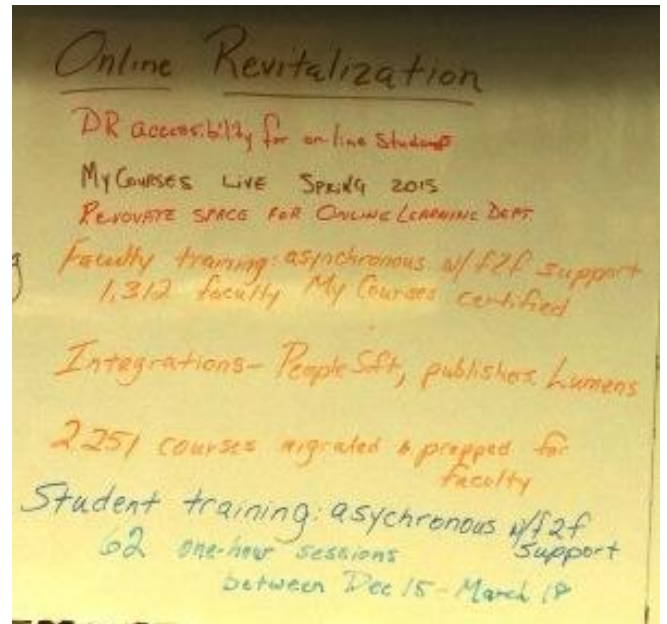 Online Revitalization
DR accessibility for on-line Students
MyCourses Live Spring 2015
Renovate space for Online Learning Dept.
Faculty training: asynchronous w/f2f support
1,312 faculty My Courses certified
Integrations- PeopleSoft, publishers, Lumens
2251 courses migrated & prepped for
faculty
Student training: asychronous w/f2f
support
62 one-hour sessions
between Dec 15 - March 18